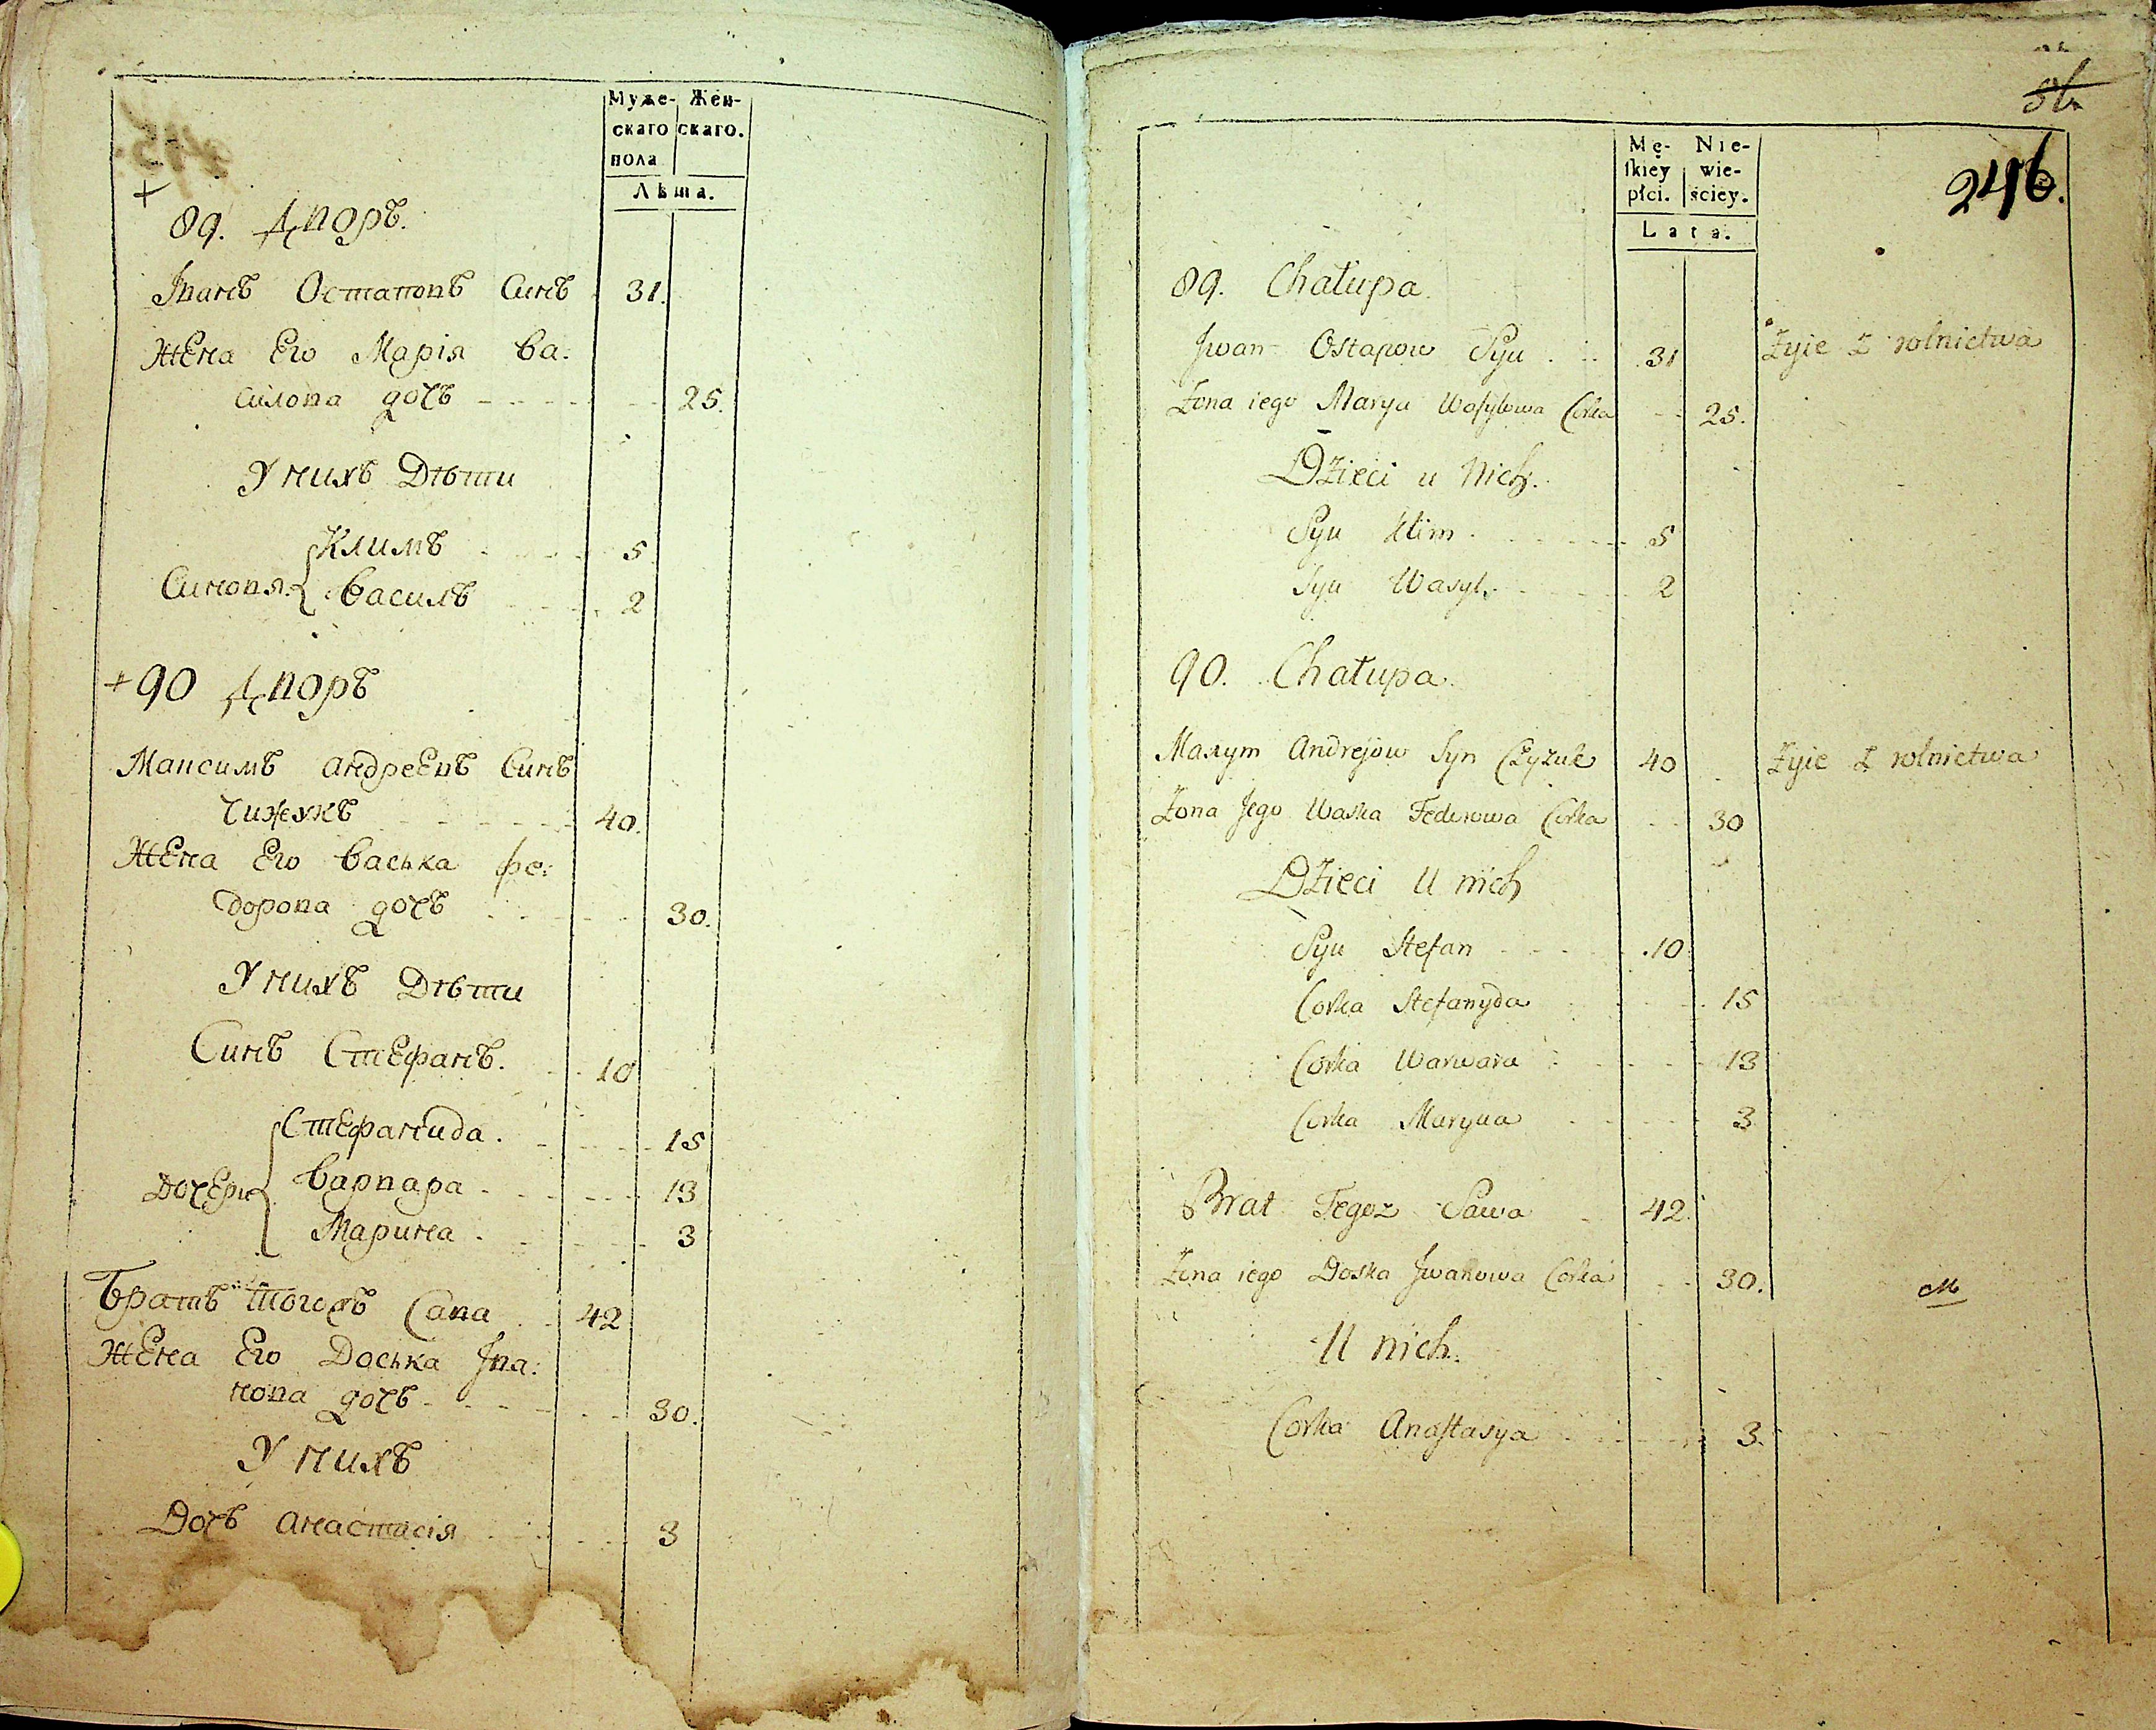 Муже- Жен-
скаго скаго.
пола
Лѣта.
+
89. Дворъ.
Іванъ Остаповъ Синъ 31.
Жена Его Марія Ва:
силова дочъ 25.
У нихъ Дѣти
Климъ 5
Синовя. Василъ 2
+ 90 Дворъ
Максимъ Андреевъ Синъ
Чижукъ 40.
Жена Его Васька Фе:
дорова дочъ 30.
У нихъ Дѣти
Синъ Стефанъ. 10
Стефанида. 15
Дочери Варвара 13
Марина 3
Братъ Тогожъ Сава 42
Жена Его Доська Іва:
нова дочъ 30.
У нихъ
Дочъ Анастасія 3
246.
Mę- Nie-
ſkiey wie-
płci. ściey.
Lata.
89. Chałupa
Jwan Ostapow Syn 31 Żyie z rolnictwa
Żona iego Marya Wasylowa Corka 25.
Dżieci u Nich.
Syn Klim 5
Syn Wasyl. 2
90. Chałupa
Maxym Andrejow Syn Czyżuk 40 Żyie z rolnictwa
Żona Jego Waska Federowa Corka 30
Dżieci U nich
Syn Stefan 10
Corka Stefanyda 15
Corka Warwara 13
Corka Maryna 3
Brat Tegoz Sawa 42.
Żona iego Doska Jwanowa Corka 30.
U nich.
Corka Anaſtasya 3.